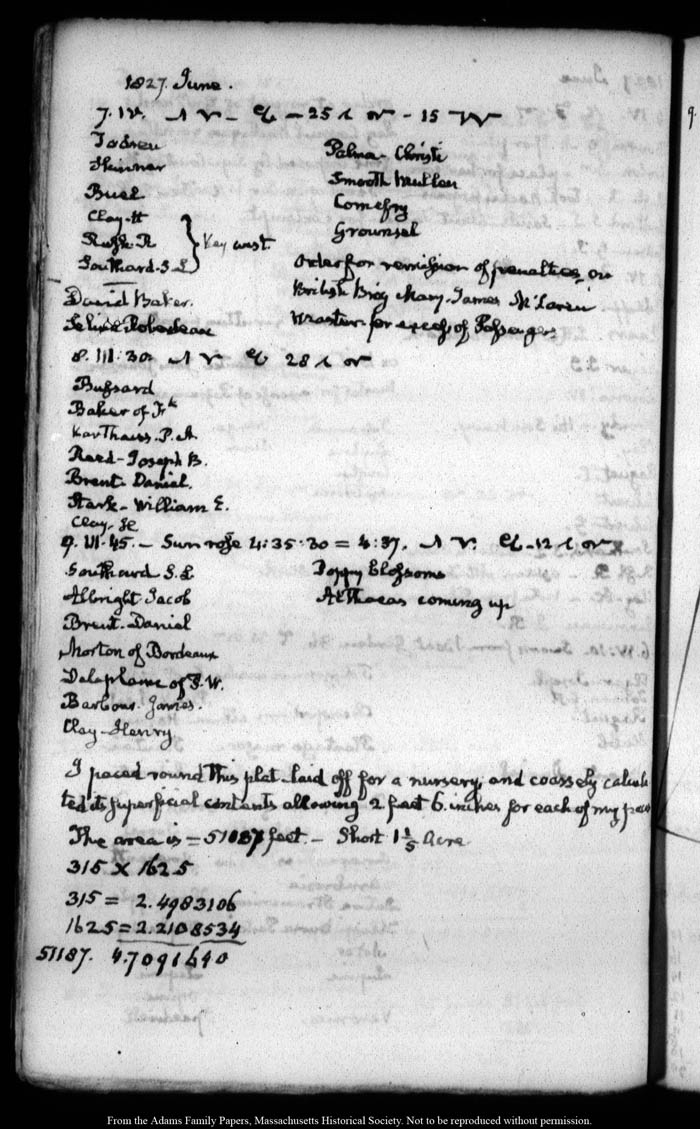 1827. June.
7. IV.
25
15
Todsen
Skinner
Buel
Clay-H
Rush. R
Southard. S. L.
Key west.
David Baker.
Palma-Christi
Smooth Mullen
Comefry
Grounsel
Order for remission of penalties, on
British Brig Mary. James McLaren
Master-for excess of Passengers
8. III:30.
28
Bussard
Baker of Fk
Karthaus. P. A.
Read-Joseph B.
Brent-Daniel.
Stark-William E.
Clay. H
9. III.45.- Sun rose 4:35:30 = 4:37.
12
Southard S. L.
Albright Jacob
Brent-Daniel
Morton of Bordeaux
Delaplaine of
Barbour-James.
Clay-Henry.
Poppy blossoms
Althaeas coming up
I paced round this plat laid off for a nursery, and coarsely calcula
ted its superficial contents allowing 2 feet 6. inches for each of my
The area is = 51187 feet.- Short 1 1/5 Acre.
315 X 162.5
315 = 2.4983106
162.5 = 2.2108534
51187. 4.7091640
From the Adams Family Papers, Massachusetts Historical Society. Not to be reproduced without permission.